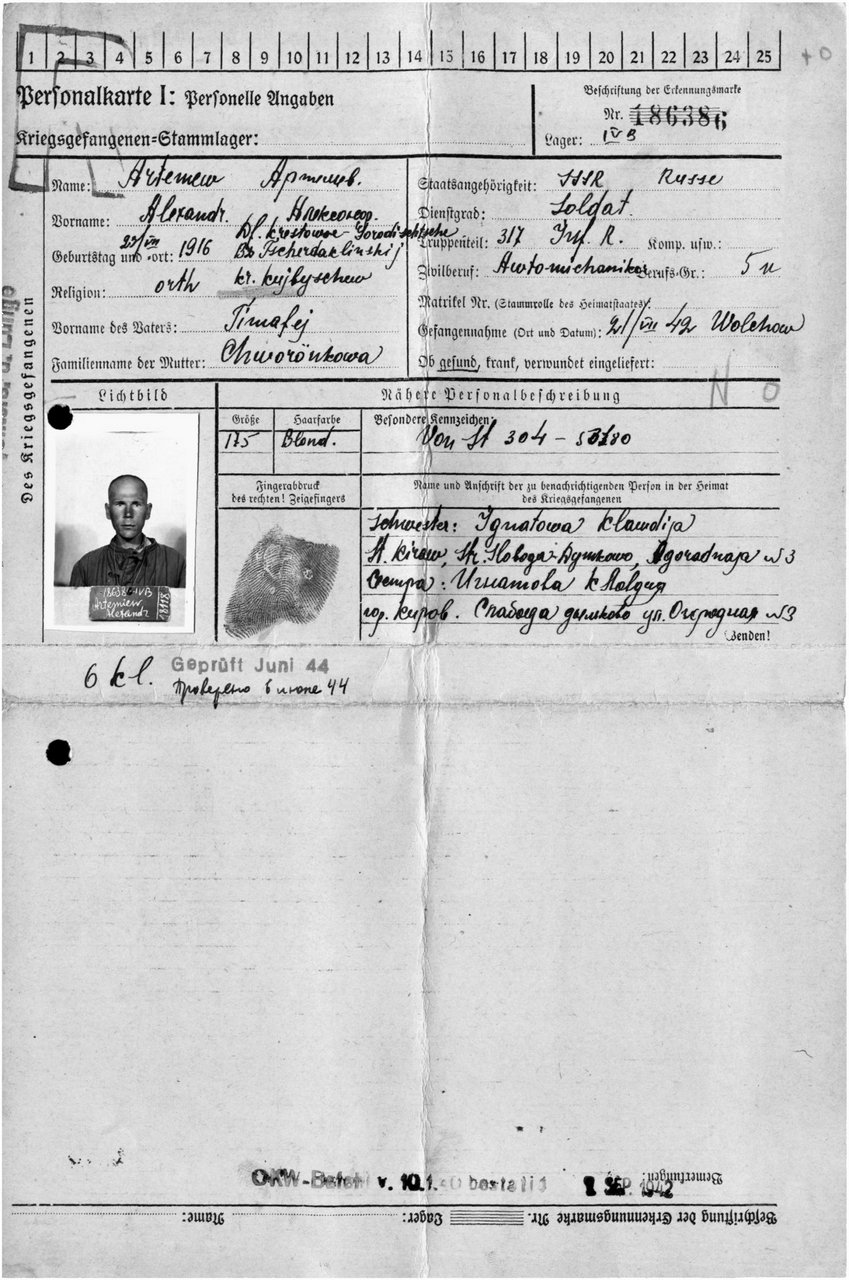 1 2 3 4 5 6 7 8 9 10 11 12 13 14 15 16 17 18 19 20 21 22 23 24 25
+0
Personalkarte I: Personelle Angaben
Kriegsgefangenen=Stammlager:
Beschriftung der Erkennungsmarke
Nr. 186386
Lager: IV B
Des Kriegsgefangenen
Name: Artemew
Vorname: Alexandr.
Df. Krestowoe-Gorodischtsche
Geburtstag und -ort: 1916 Bz Tscherdaklinskij
Religion: orth kr. kujbyschew
Vorname des Vaters: Timafej
Familienname der Mutter: Chworonkowa
Staatsangehörigkeit: SSSR Russe
Dienstgrad: Soldat.
Truppenteil: 317 Inf. R. Komp. usw.:
Zivilberuf: Awtomichaniker Berufs-Gr.: 5
Matrikel Nr. (Stammrolle des Heimatstaates):
Gefangennahme (Ort und Datum): 21/VII 42 Wolchow
Ob gesund, krank, verwundet eingeliefert:
Lichtbild
Nähere Personalbeschreibung
N o
Größe Haarfarbe Besondere Kennzeichen:
175 Blond. Von St 304 –
Fingerabdruck
des rechten! Zeigefingers
Name und Anschrift der zu benachrichtigenden Person in der Heimat
des Kriegsgefangenen
Schwester: Ignatowa Klawdija
St. Kirow, Str. Ogoradnaja N 3
Сестра: Игнатова
гор. Киров. Слабода дымково ул. Огородная N3
Wenden!
186386 IVB
Artemiew
Alexandr
18118
6 kl. Geprüft Juni 44
Проверено в июне 44
OKW-Befehl v. 10.1. SEP. 1942
Bemerkungen:
Beschriftung der Erkennungsmarke Nr. Lager: Name: